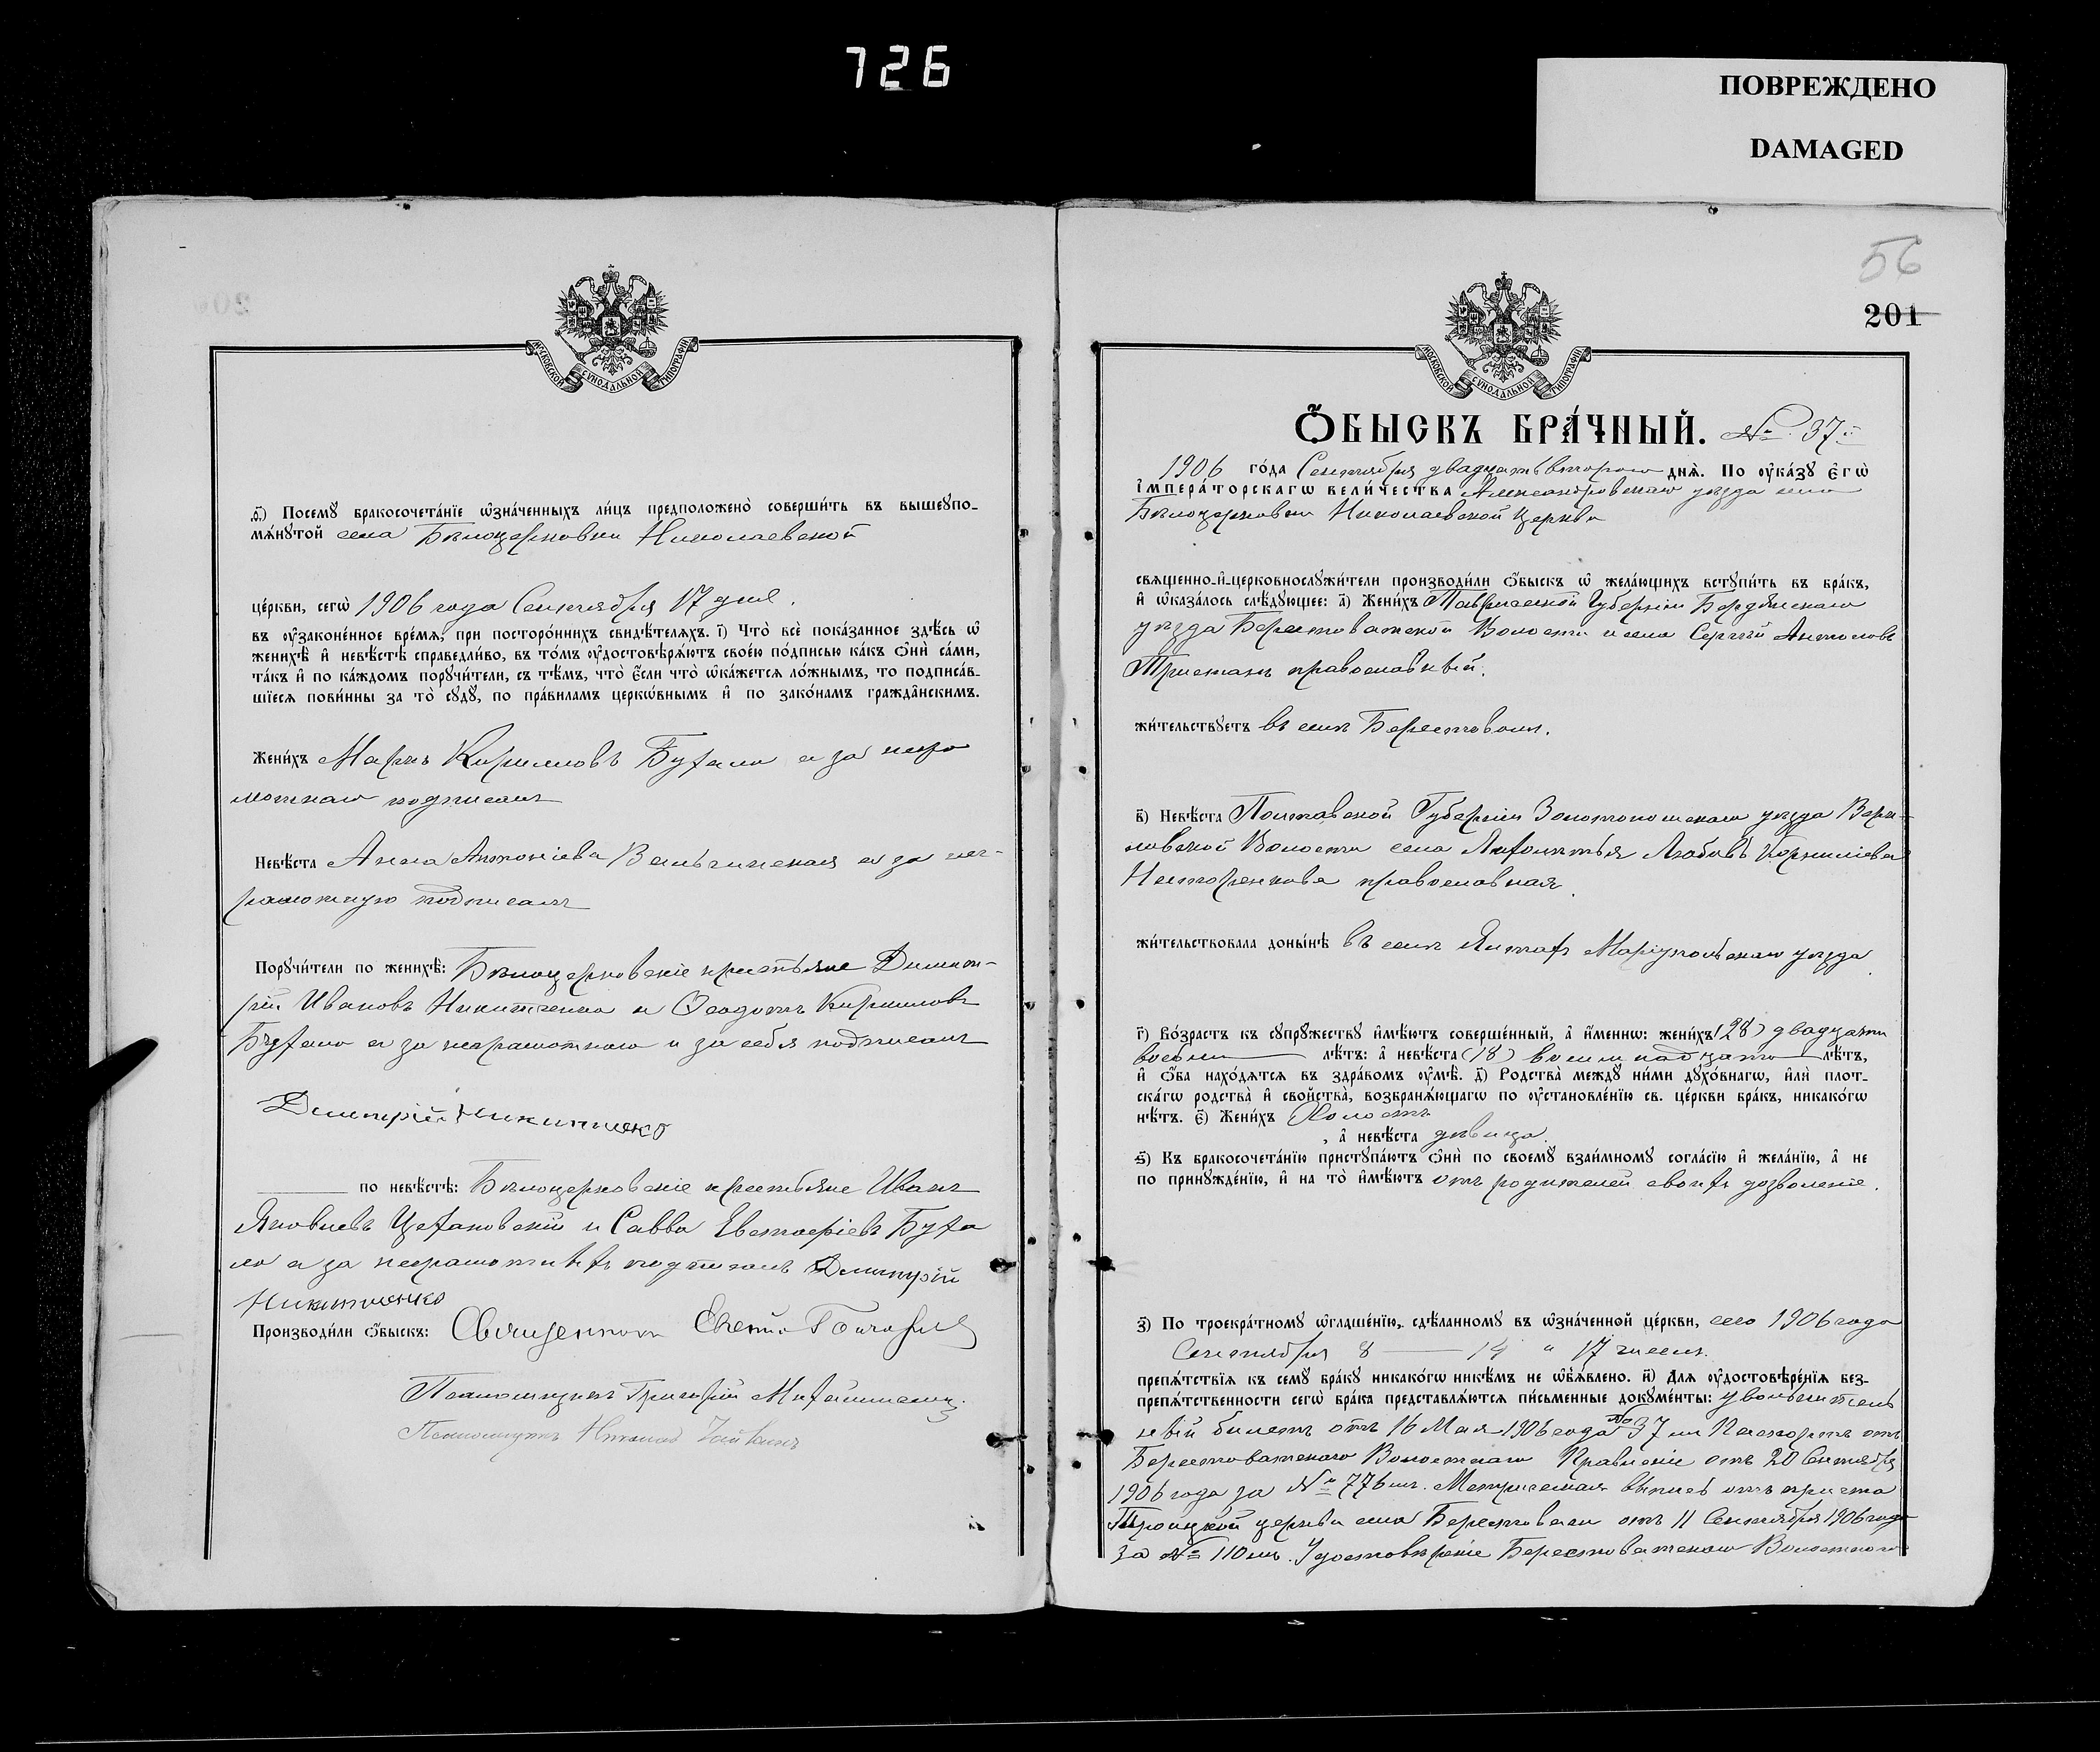 726
ПОВРЕЖДЕНО
DAMAGED
МОСКОВСКОЙ СѴНОДАЛЬНОЙ ТИПОГРАФІИ
ѳ҃) Посемꙋ бракосочета́нїе ѡ҆зна́ченныхъ ли́цъ предположено̀ соверши́ть въ вышеꙋпо-
мѧ́нꙋтой села Бѣлоцерковки Николаевской
це́ркви, сегѡ̀ 1906 года Сентября 17 дня.
въ ᲂу҆законе́нное вре́мѧ, при посторо́ннихъ свидѣ́телѧхъ. і҃) Что̀ всѐ пока́занное здѣ́сь ѡ҆
женихѣ̀ и҆ невѣ́стѣ справедли́во, въ то́мъ ᲂу҆достовѣрѧ́ютъ свое́ю по́дписью ка́къ ѻ҆нѝ са́ми,
та́къ и҆ по ка́ждомъ порꙋчи́тели, съ тѣ́мъ, что̀ є҆́сли что̀ ѡ҆ка́жетсѧ ло́жнымъ, то подписа́в-
шїесѧ пови́нны за то̀ сꙋдꙋ̀, по пра́виламъ церко́внымъ и҆ по зако́намъ гражда́нскимъ.
Жени́хъ Маркъ Кирилловъ Бухало а за негра
мотнаго подписался
Невѣ́ста Анна Антоніева Вельчинская а за нег-
рамотную подписалъ
Порꙋчи́тели по женихѣ̀: Бѣлоцерковскіе крестьяне Димит-
рій Ивановъ Никитченко и Ѳеодотъ Кирилловъ
Бухало а за неграмотнаго и за себя подписалъ
Дмитрій Никитченко
по невѣ́стѣ: Бѣлоцерковскіе крестьяне Иванъ
Яковлевъ Цехановскій и Савва Евстафіевъ Буха
ло а за неграмотныхъ подписалъ Дмитрій
Никитченко
Производи́ли ѻ҆́быскъ: Священникъ
Псаломщикъ Григорій
Псаломщикъ
56
201
МОСКОВСКОЙ СѴНОДАЛЬНОЙ ТИПОГРАФІИ
Ѻ҆́БЫСКЪ БРА́ЧНЫЙ. № 37й
1906 го́да Сентября двадцать втораго днѧ̀. По ᲂу҆ка́зꙋ є҆гѡ̀
і҆мпера́торскагѡ вели́чества Александровскаго уѣзда села
Бѣлоцерковки Николаевской церкви
свѧщенно-и҆-церковнослꙋжи́тели производи́ли ѻ҆́быскъ ѡ҆ жела́ющихъ встꙋпи́ть въ бра́къ,
и҆ ѡ҆каза́лось слѣ́дꙋющее: а҃) Жени́хъ Таврической Губерніи Бердянскаго
уѣзда Берестоватской Волости и села Сергій Антоновъ
Тристанъ православный.
жи́тельствꙋетъ въ селѣ Берестовомъ.
в҃) Невѣ́ста Полтавской Губерніи Золотоношскаго уѣзда Верем-
ловской Волости села Любовь Корниліева
Несторенкова православная.
жи́тельствовала доны́нѣ въ селѣ Янтахъ Маріупольскаго уѣзда
г҃) Во́зрастъ къ сꙋпрꙋ́жествꙋ и҆мѣ́ютъ соверше́нный, а҆ и҆́меннѡ: жени́хъ (28) двадцати
восьми лѣ́тъ: а҆ невѣ́ста (18) восемнадцати лѣ́тъ,
и҆ ѻ҆́ба нахо́дѧтсѧ въ здра́вомъ ᲂу҆мѣ̀. д҃) Родства̀ междꙋ̀ ни́ми дꙋхо́внагѡ, и҆лѝ плот-
ска́гѡ родства̀ и҆ свойства̀, возбранѧ́ющагѡ по ᲂу҆становле́нїю св. це́ркви бра́къ, никако́гѡ
нѣ́тъ. є҃) Жени́хъ Холостъ
, а҆ невѣ́ста дѣвица.
ѕ҃) Къ бракосочета́нїю пристꙋпа́ютъ ѻ҆нѝ по своемꙋ̀ взаи́мномꙋ согла́сїю и҆ жела́нїю, а҆ не
по принꙋжде́нїю, и҆ на то̀ и҆мѣ́ютъ отъ родителей своихъ дозволеніе.
з҃) По троекра́тномꙋ ѡ҆глаше́нїю, сдѣ́ланномꙋ въ ѡ҆зна́ченной це́ркви, сего 1906 года
Сентября 8 — 14 и 17 чиселъ.
препѧ́тствїѧ къ семꙋ̀ бра́кꙋ никако́гѡ никѣ́мъ не ѡ҆б̾ѧ́влено. и҃) Для ᲂу҆достовѣре́нїѧ без-
препѧ́тственности сегѡ̀ бра́ка представлѧ́ютсѧ пи́сьменные докꙋме́нты: увольнитель
ный билетъ отъ 16 Мая 1906 года № 37 и Паспортъ отъ
Берестоватскаго Волостнаго Правленія отъ 20 Сентября
1906 года за № 776мъ. Метрическая выпись отъ причта
Троицкой церкви села Берестоваго отъ 11 Сентября 1906 года
за № 110мъ. Удостовѣреніе Берестоватскаго Волостнаго